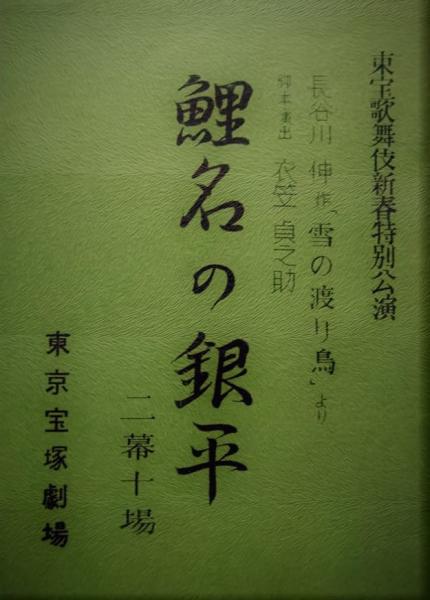 東宝歌舞伎新春特別公演
長谷川伸作「雪の渡り鳥」より
脚本演出 衣笠貞之助
鯉名の銀平
二幕十場
東京宝塚劇場